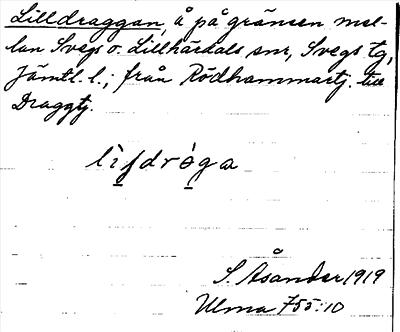 Lilldraggan, å på gränsen mel-
lan Svegs o. Lillhärdals snr, Svegs tg,
Jämtl. l.; från Rödhammartj. till
Draggtj.
S. Åsander 1919
Ulma 755:10